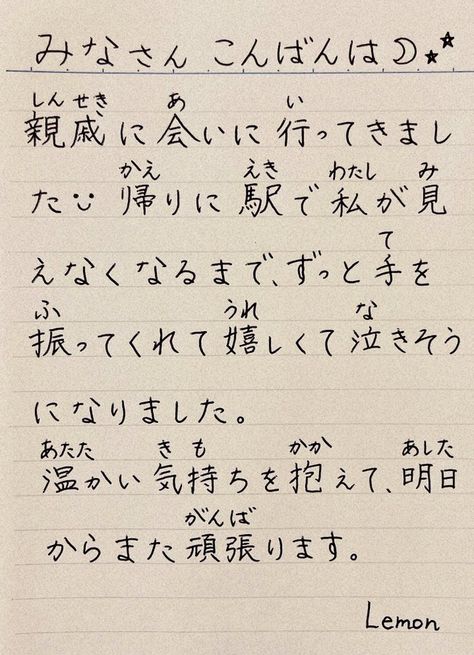 みなさん こんばんは☽⋆⋆
しんせき あ い
親戚に会いに行ってきまし
かえ えき わたし み
た☺ 帰りに駅で私が見
て
えなくなるまで、ずっと手を
ふ うれ な
振ってくれて嬉しくて泣きそう
になりました。
あたた きも かか あした
温かい気持ちを抱えて、明日
がんば
からまた頑張ります。
Lemon